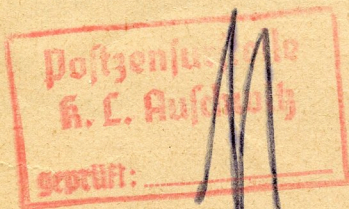 Postzensurstelle
K. L. Auschwitz
geprüft: